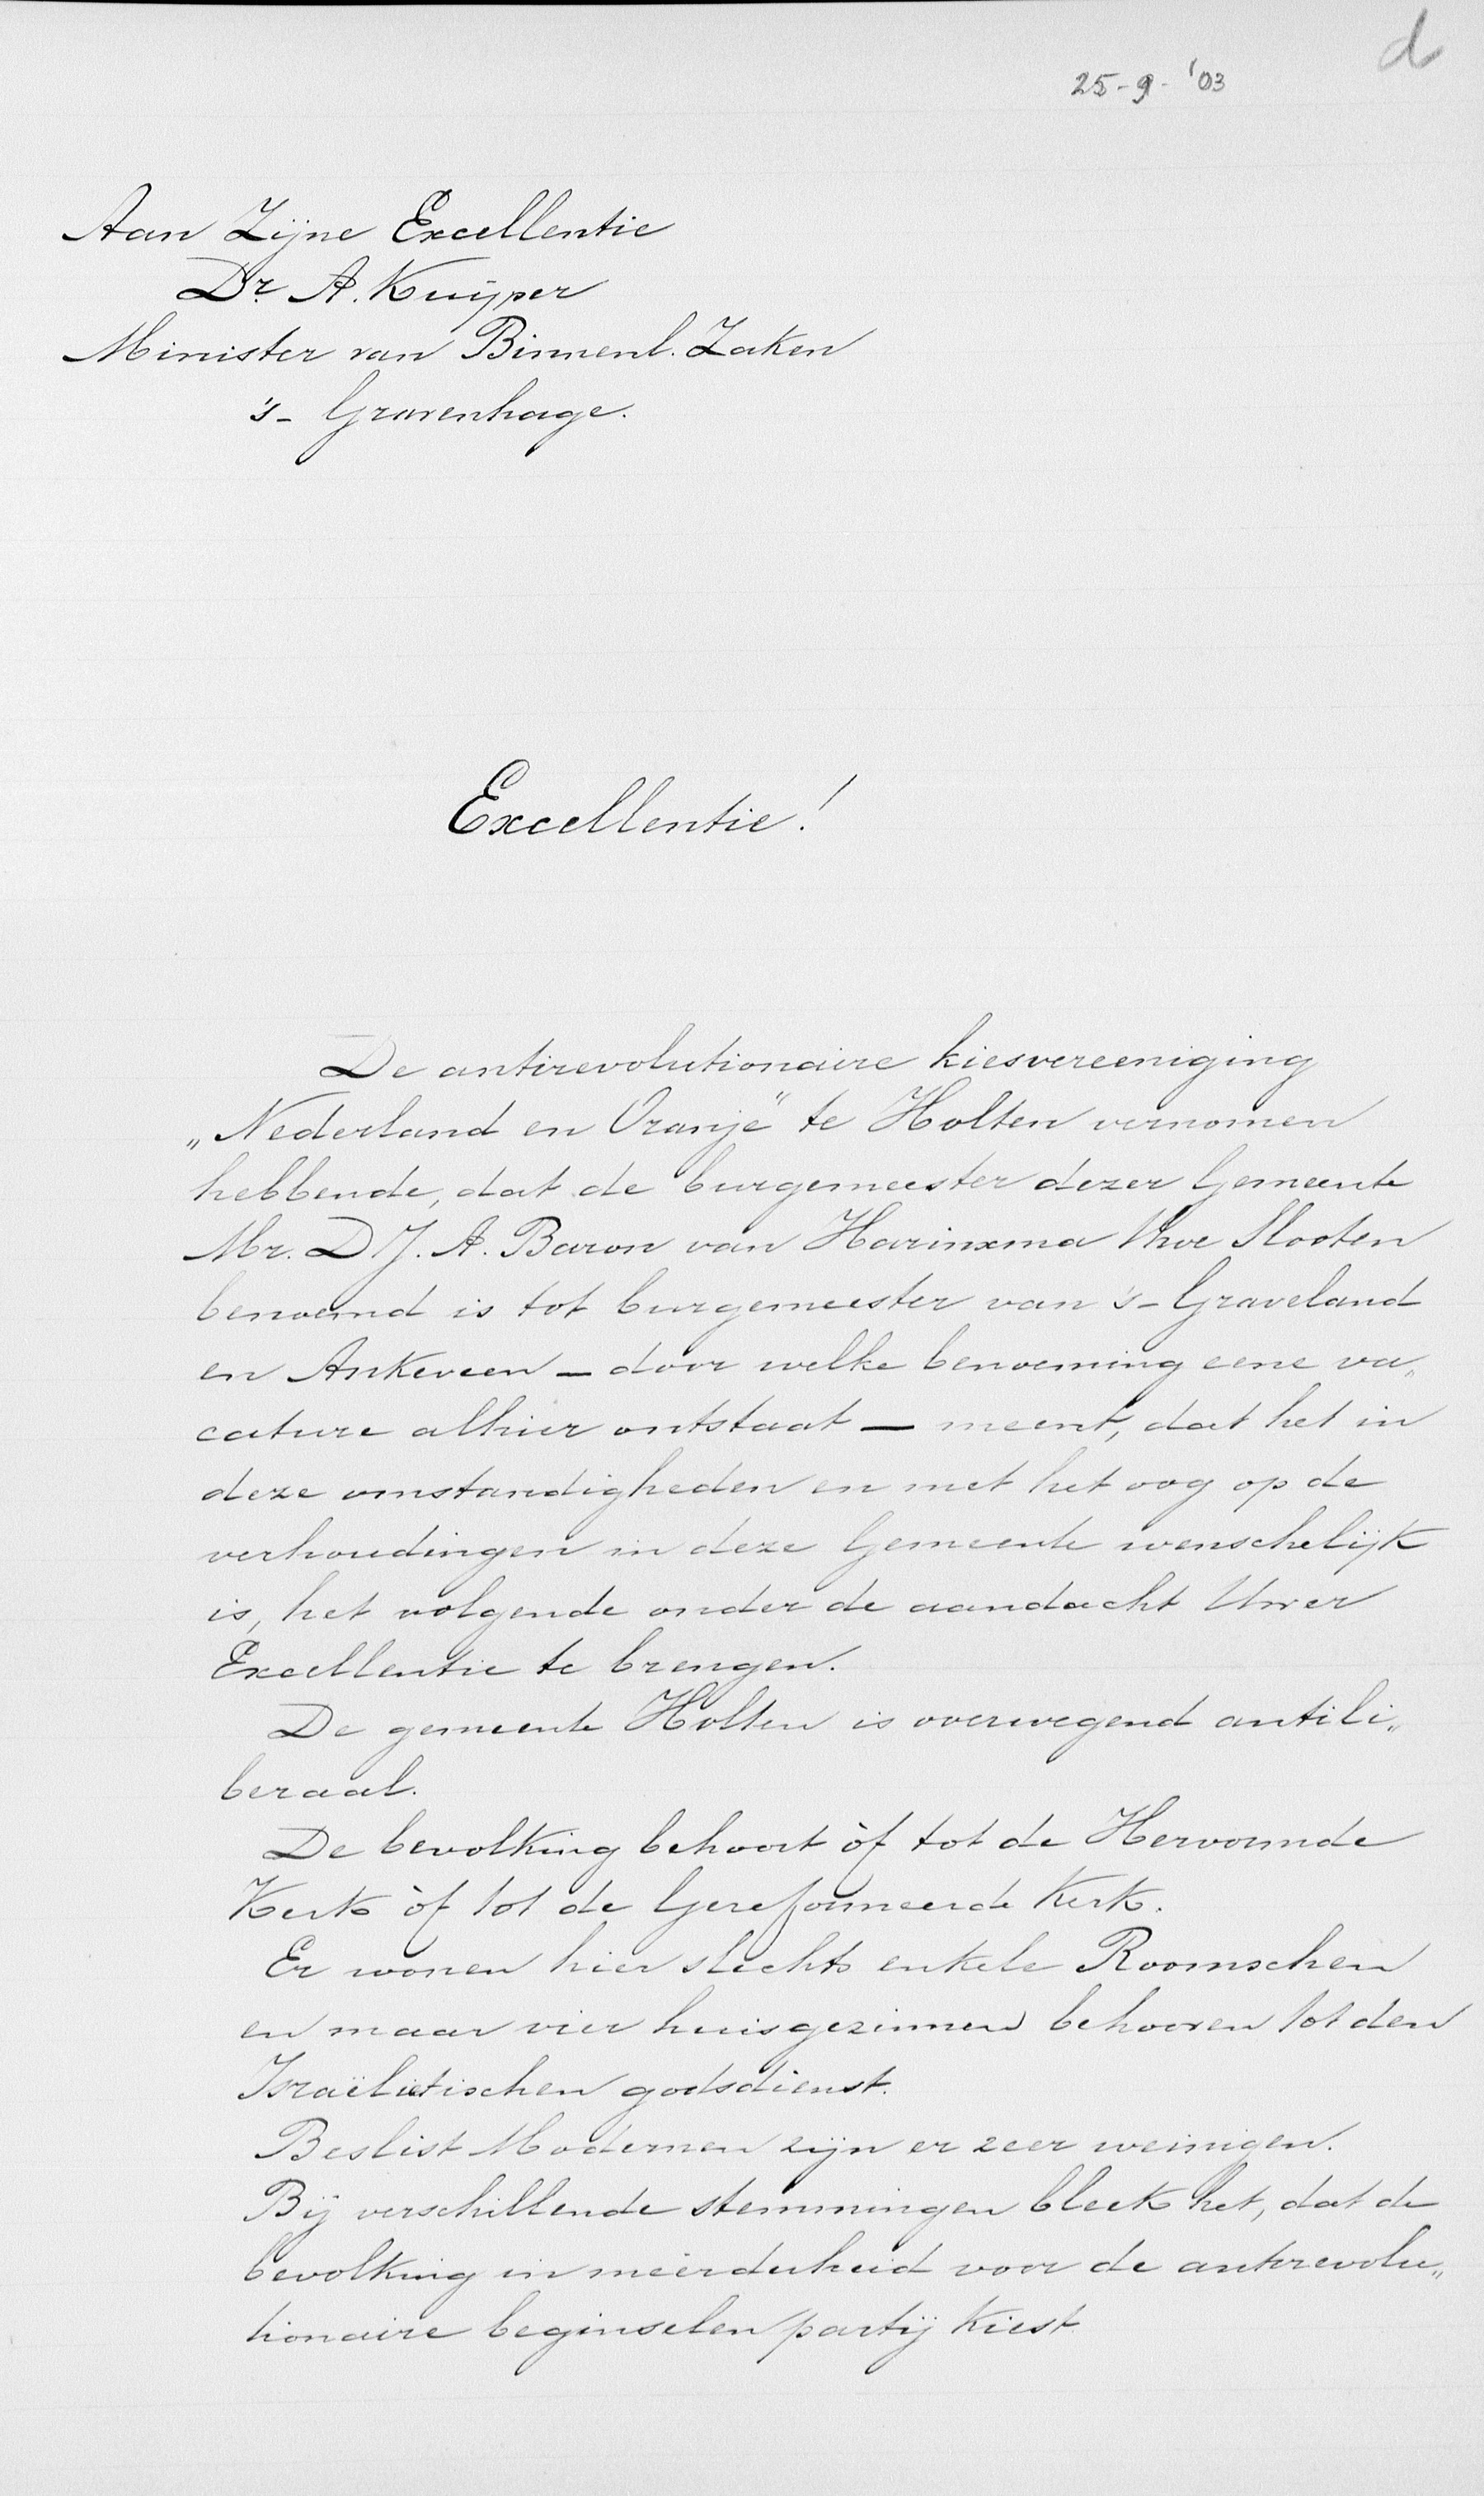 d
25-9-'03
Aan Zijne Excellentie
Dr. A. Kuijper
Minister van Binnenl. Zaken
's-Gravenhage.
Excellentie!
De antirevolutionaire kiesvereeniging
„Nederland en Oranje" te Holten vernomen
hebbende, dat de burgemeester dezer Gemeente
Mr. D. J. A. Baron van Harinxma Thoe Slooten
benoemd is tot burgemeester van 's-Graveland
en Ankeveen – door welke benoeming eene va„
cature alhier ontstaat – meent, dat het in
deze omstandigheden en met het oog op de
verhoudingen in deze Gemeente wenschelijk
is, het volgende onder de aandacht Uwer
Excellentie te brengen.
De gemeente Holten is overwegend antili„
beraal.
De bevolking behoort òf tot de Hervormde
Kerk òf tot de Gereformeerde Kerk.
Er wonen hier slechts enkele Roomschen
en maar vier huisgezinnen behooren tot den
Israëlietischen godsdienst.
Beslist Modernen zijn er zeer weinigen.
Bij verschillende stemmingen bleek het, dat de
bevolking in meerderheid voor de antirevolu„
tionaire beginselen partij kiest